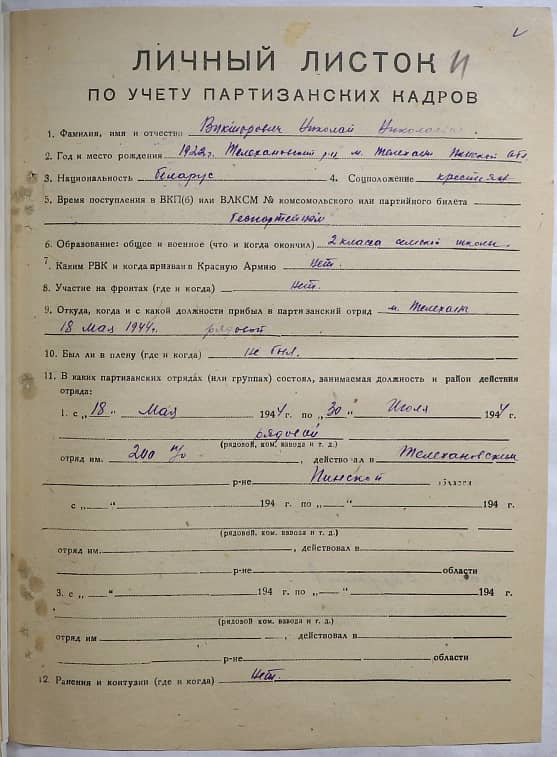 ЛИЧНЫЙ ЛИСТОК
ПО УЧЕТУ ПАРТИЗАНСКИХ КАДРОВ
1. Фамилия, имя и отчество Викторович Николай Николаевич
2. Год и место рождения 1922г. Телехановский р-н м. Телеханы Пинской обл
3. Национальность беларус 4. Соцположение крестьян
5. Время поступления в ВКП(б) или ВЛКСМ № комсомольского или партийного билета
беспартейный
6. Образование: общее и военное (что и когда окончил) 2 класса сельской школы.
7. Каким РВК и когда призван в Красную Армию Нет.
8. Участие на фронтах (где и когда) Нет.
9. Откуда, когда и с какой должности прибыл в партизанский отряд м. Телеханы
18 Мая 1944г. рядовой
10. Был ли в плену (где и когда) не был.
11. В каких партизанских отрядах (или группах) состоял, занимаемая должность и район действия
отряда:
1. с „18“ Мая 1944 г. по „30“ Июля 1944 г.
рядовой
(рядовой, ком. взвода и т. д.)
отряд им. 200, действовал в Телехановском
р-не Пинской области
с „ “ 194 г. по „ “ 194 г.
(рядовой, ком. взвода и т. д.)
отряд им. , действовал в
р-не области
3. с „ “ 194 г. по „ “ 194 г.
(рядовой ком. взвода и т. д.)
отряд им , действовал в
р-не области
12. Ранения и контузии (где и когда) Нет.